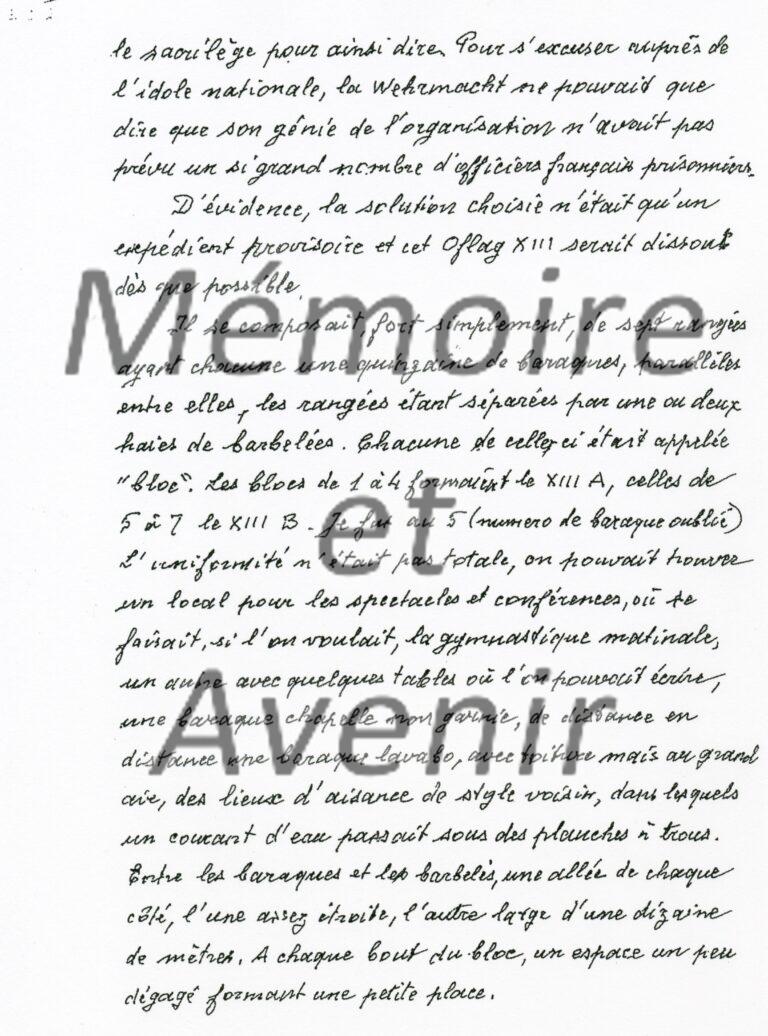 le sacrilège pour ainsi dire. Pour s'excuser auprès de
l'idole nationale, la Wehrmacht ne pouvait que
dire que son génie de l'organisation n'avait pas
prévu un si grand nombre d'officiers français prisonniers.
D'évidence, la solution choisie n'était qu'un
expédient provisoire et cet Oflag XIII serait dissout
dès que possible.
Il se composait, fort simplement, de sept rangées
ayant chacune une quinzaine de baraques, parallèles
entre elles, les rangées étant séparées par une ou deux
haies de barbelées. Chacune de celles ci était appelée
"bloc". Les blocs de 1 à 4 formaient le XIII A, celles de
5 à 7 le XIII B. Je fus au 5 (numero de baraque oublié)
L'uniformité n'était pas totale, on pouvait trouver
un local pour les spectacles et conférences, où se
faisait, si l'on voulait, la gymnastique matinale,
un autre avec quelques tables où l'on pouvait écrire,
une baraque chapelle non garnie, de distance en
distance une baraque lavabo, avec toiture mais au grand
air, des lieux d'aisance de style voisin, dans lesquels
un courant d'eau passait sous des planches à trous.
Entre les baraques et les barbelés, une allée de chaque
côté, l'une assez étroite, l'autre large d'une dizaine
de mètres. A chaque bout du bloc, un espace un peu
dégagé formant une petite place.
Mémoire
et
Avenir